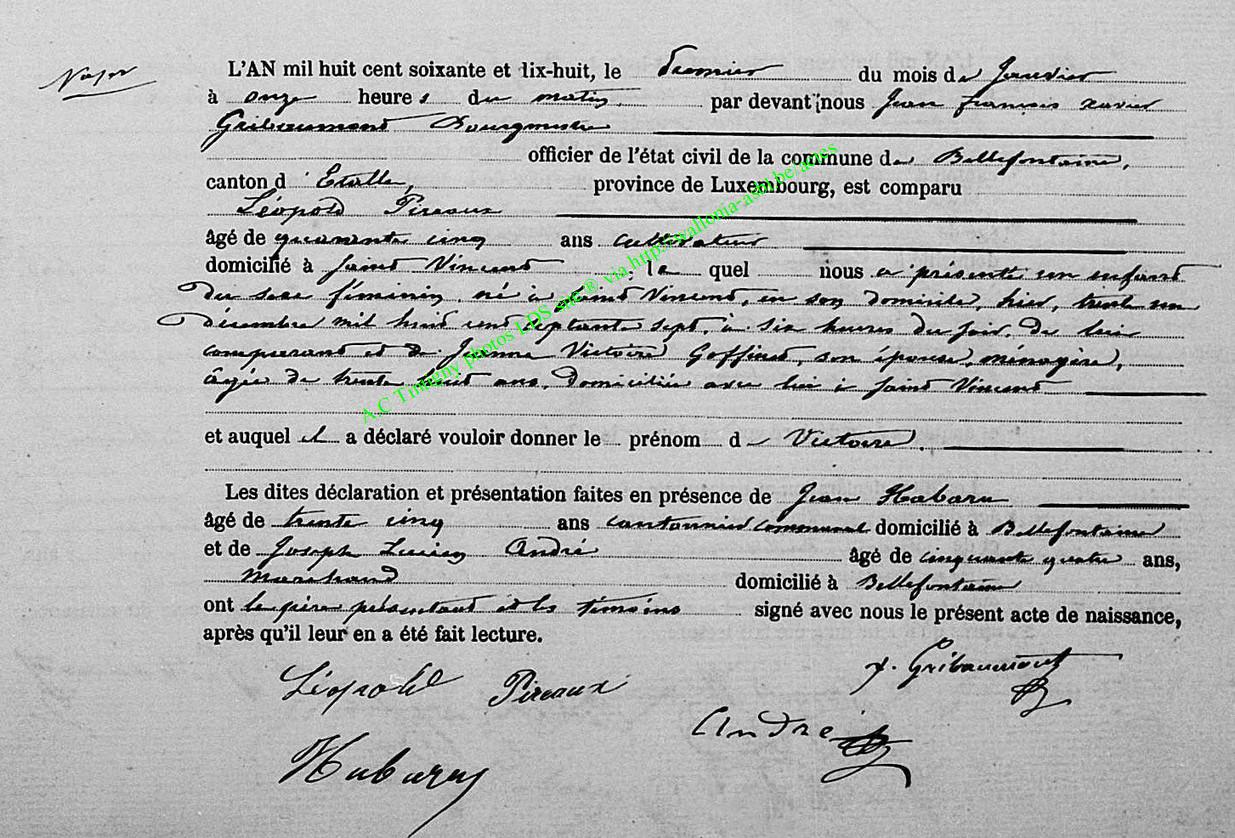 L'AN mil huit cent soixante et dix-huit, le Premier du mois de Janvier
à onze heures du matin par devant nous Jean françois xavier
Gribaumont Bourgmestre
officier de l'état civil de la commune de Bellefontaine,
canton d'Etalle, province de Luxembourg, est comparu
Léopold Pireaux
âgé de quarante cinq ans cultivateur
domicilié à Saint Vincent le quel nous a présenté un enfant
du sexe féminin, né à Saint Vincent, en son domicile, hier, trente un
décembre mil huit cent septante sept, à six heures du soir, de lui
comparant et de Jeanne Victoire Goffinet, son épouse, ménagère,
âgée de trente huit ans, domiciliée avec lui à Saint Vincent
et auquel il a déclaré vouloir donner le prénom de Victoire
Les dites déclaration et présentation faites en présence de Jean Habaru
âgé de trente cinq ans cantonnier communal domicilié à Bellefontaine
et de Joseph Lucien André âgé de cinquante quatre ans,
Marchand domicilié à Bellefontaine
ont le père présentant et les témoins signé avec nous le présent acte de naissance,
après qu'il leur en a été fait lecture.
Léopold Pireaux
x. Gribaumont
André
Habaru
A.C Tintigny photos LDS via http://wallonia-asbl.be/ames